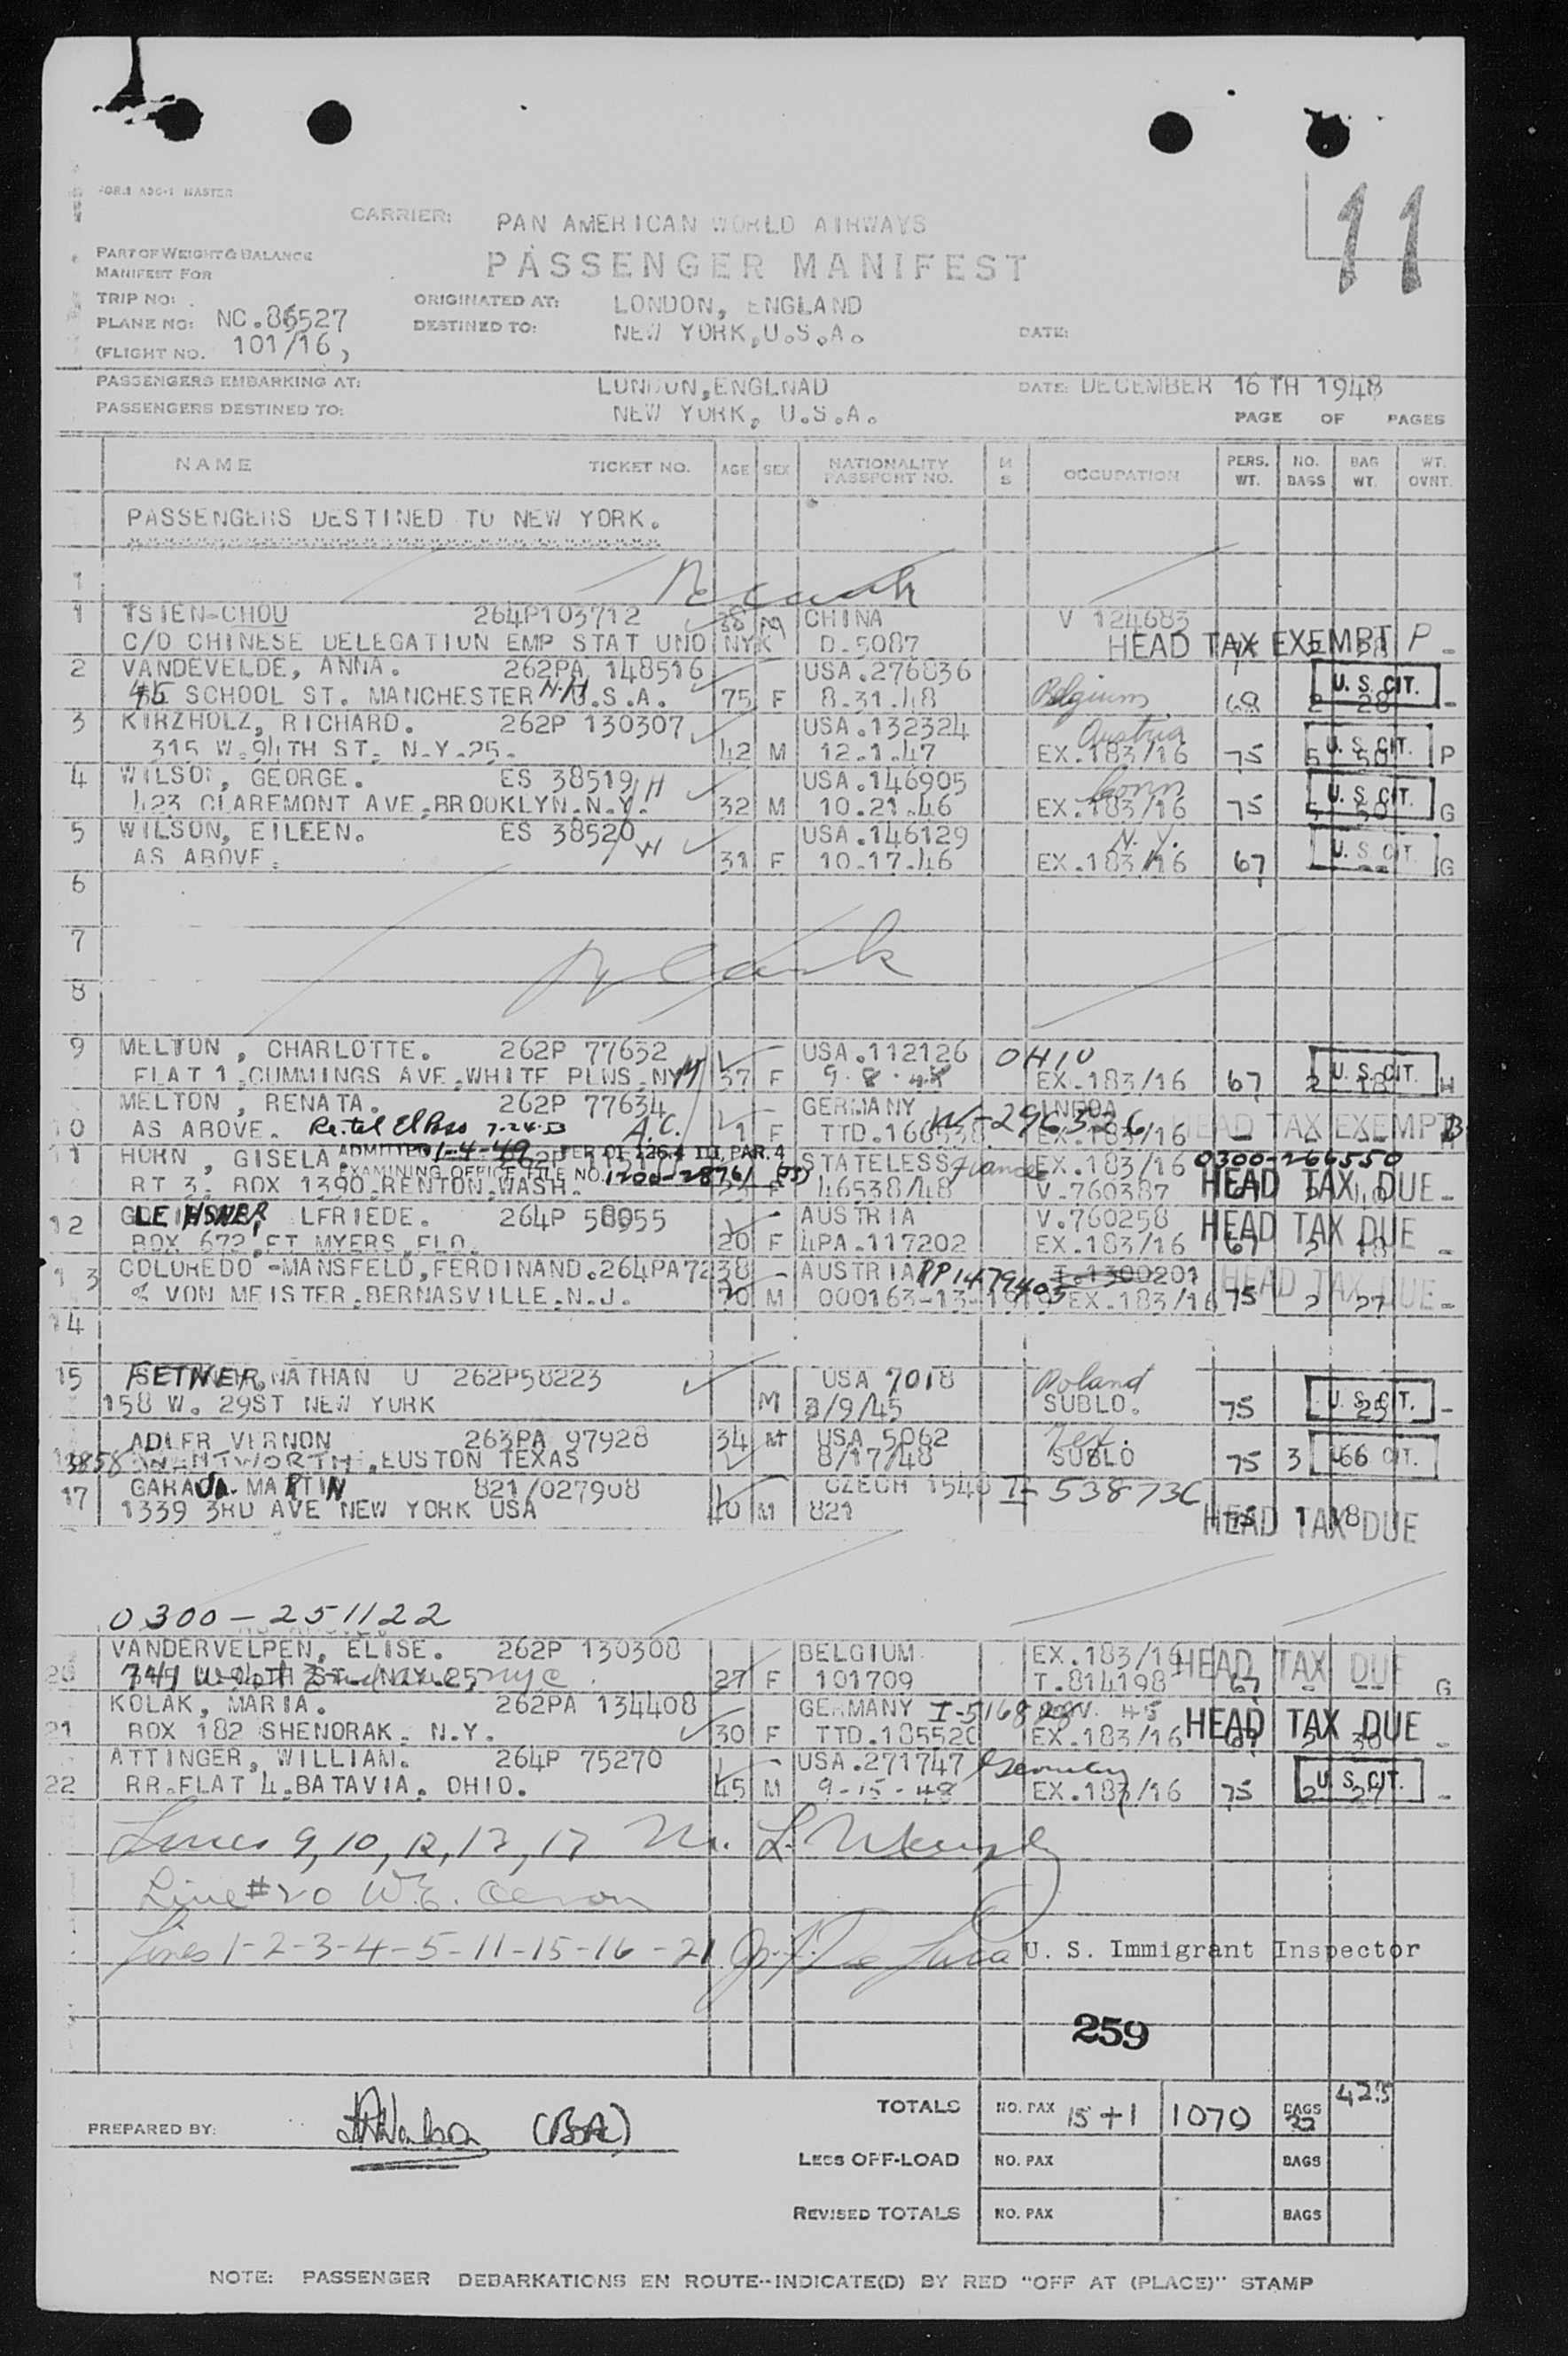 FORM ADC-1 MASTER
11
CARRIER: PAN AMERICAN WORLD AIRWAYS
PASSENGER MANIFEST
PART OF WEIGHT & BALANCE
MANIFEST FOR
TRIP NO: ORIGINATED AT: LONDON, ENGLAND
PLANE NO: NC.86527 DESTINED TO: NEW YORK,U.S.A. DATE:
(FLIGHT NO. 101/16,)
PASSENGERS EMBARKING AT: LONDON,ENGLNAD DATE: DECEMBER 16 TH 1948
PASSENGERS DESTINED TO: NEW YORK, U.S.A. PAGE OF PAGES
NAME TICKET NO. AGE SEX NATIONALITY PASSPORT NO. M S OCCUPATION PERS. WT. NO. BAGS BAG WT. WT. OVNT.
PASSENGERS DESTINED TO NEW YORK.
1
1 TSIEN-CHOU 264P103712 38 M CHINA V 124683
C/O CHINESE DELEGATION EMP STAT UNO NYK D.5087 HEAD TAX EXEMPT P -
2 VANDEVELDE, ANNA. 262PA 148516 USA.276836
SCHOOL ST. MANCHESTER N.H U.S.A. 75 F 8.31.48 Belgium 68 2 28 U. S. CIT. -
3 KIRZHOLZ, RICHARD. 262P 130307 USA.132324 Austria
315 W.94TH ST. N.Y.25. 42 M 12.1.47 EX.183/16 75 5 50 U. S. CIT. P
4 WILSON, GEORGE. ES 38519 H USA.146905 Conn
423 CLAREMONT AVE.BROOKLYN.N.Y. 32 M 10.21.46 EX.183/16 75 5 50 U. S. CIT. G
5 WILSON, EILEEN. ES 38520 W USA.146129 N.Y.
AS ABOVE. 31 F 10.17.46 EX.183/16 67 U. S. CIT. G
6
7
Blank
8
9 MELTON , CHARLOTTE. 262P 77632 USA.112126 OHIO
FLAT 1.CUMMINGS AVE.WHITE PLNS.NY 37 F 9.8.48 EX.183/16 67 2 18 U. S. CIT. H
MELTON , RENATA. 262P 77634 GERMANY W-296326
10 AS ABOVE. Re.tel El Paso 7-24-53 A.C. 1 F EX.183/16 HEAD TAX EXEMPT
11 HORN , GISELA ADMITTED 1-4-49 PER OI 226.4 III, PAR. 4 STATELESS fiancee EX.183/16 0300-266550
EXAMINING OFFICE FILE NO. 1200-28761
RT 3. BOX 1390.RENTON.WASH. F 46538/48 V.760387 HEAD TAX DUE -
12 LEHSNER, LFRIEDE. 264P 58055 AUSTRIA V.760258 HEAD TAX DUE
BOX 672.FT MYERS.FLO. 20 F 4PA.117202 EX.183/16 67 2 18 -
13 COLOREDO -MANSFELD,FERDINAND.264PA7238 AUSTRIA PP147940 T.1300201
% VON MEISTER.BERNASVILLE.N.J. 70 M EX.183/16 75 2 27 HEAD TAX DUE -
14
15 FETNER, NATHAN U 262P58223 USA 7018 Poland
158 W. 29ST NEW YORK M 3/9/45 SUBLO. 75 25 U. S. CIT. -
ADLER VERNON 263PA 97928 34 M USA 5062 Tex.
3858 WENTWORTH .EUSTON TEXAS 8/17/48 SUBLO 75 3 66 CIT.
17 GARAJA. MARTIN 821/027908 CZECH 1540 I-53873C
1339 3RD AVE NEW YORK USA 40 M 821 75 1 18 HEAD TAX DUE
0300-251122
VANDERVELPEN, ELISE. 262P 130308 BELGIUM EX.183/16 HEAD TAX DUE
20 27 F 101709 T.814198 67 G
KOLAK, MARIA. 262PA 134408 GERMANY
21 BOX 182 SHENORAK. N.Y. 30 F TTD.185520 EX.183/16 HEAD TAX DUE -
ATTINGER, WILLIAM. 264P 75270 USA.271747 Germany
22 RR.FLAT 4.BATAVIA. OHIO. 45 M 9-15-48 EX.183/16 75 2 27 U. S. CIT. -
Lines 9, 10, 12, 13, 17
Line #20 W.E.
Lines 1-2-3-4-5-11-15-16-21 U. S. Immigrant Inspector
259
TOTALS NO. PAX 15+1 1070 BAGS 32 425
PREPARED BY: (BA)
LESS OFF-LOAD NO. PAX BAGS
REVISED TOTALS NO. PAX BAGS
NOTE: PASSENGER DEBARKATIONS EN ROUTE--INDICATE(D) BY RED "OFF AT (PLACE)" STAMP